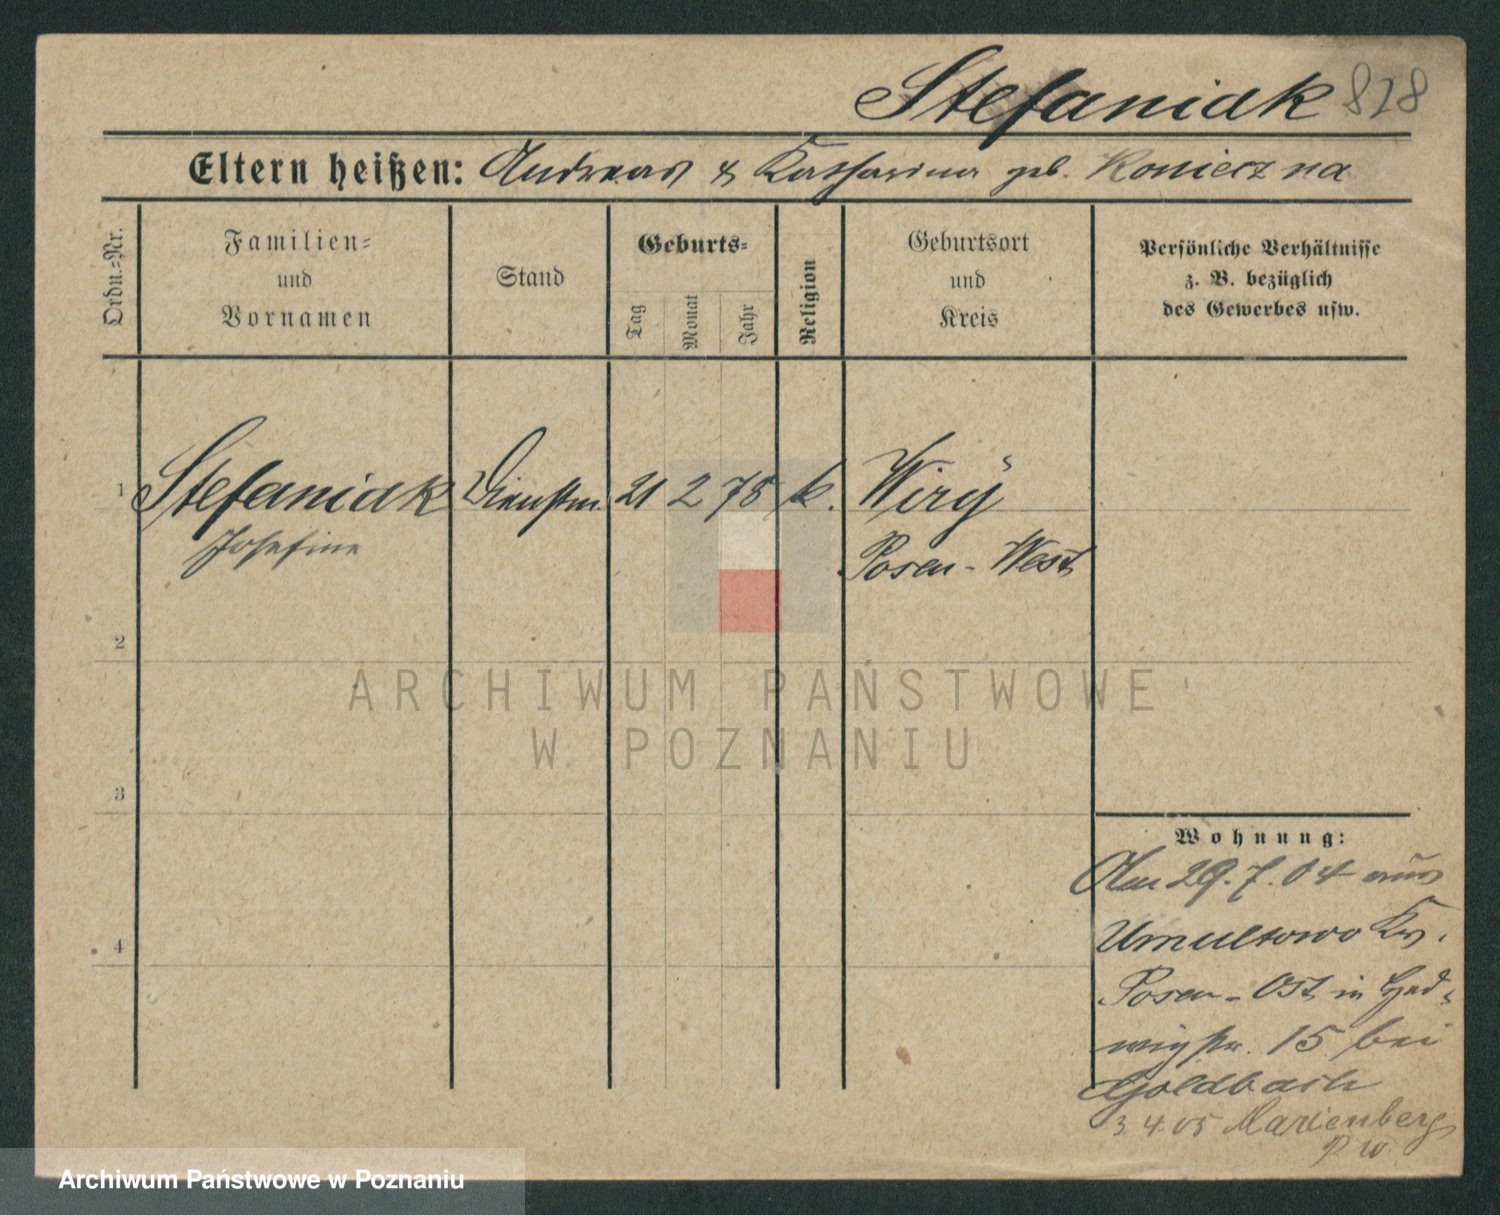 Stefaniak 828
Eltern heißen: Andreas & Katharina geb. Konieczna
Ordn.=Nr.
Familien=
und
Vornamen
Stand
Geburts=
Tag
Monat
Jahr
Religion
Geburtsort
und
Kreis
Persönliche Verhältnisse
z. B. bezüglich
des Gewerbes usw.
1 Stefaniak Dienstm. 21 2 78 k. Wiry
Josefine
Posen - West
2
ARCHIWUM PAŃSTWOWE
W POZNANIU
3
Wohnung:
Am 29.7.04 aus
Umultowo Kr.
4
Posen - Ost in Hed-
wigstr. 15 bei
Goldbach
3.4.05 Marienberg
P. W.
Archiwum Państwowe w Poznaniu